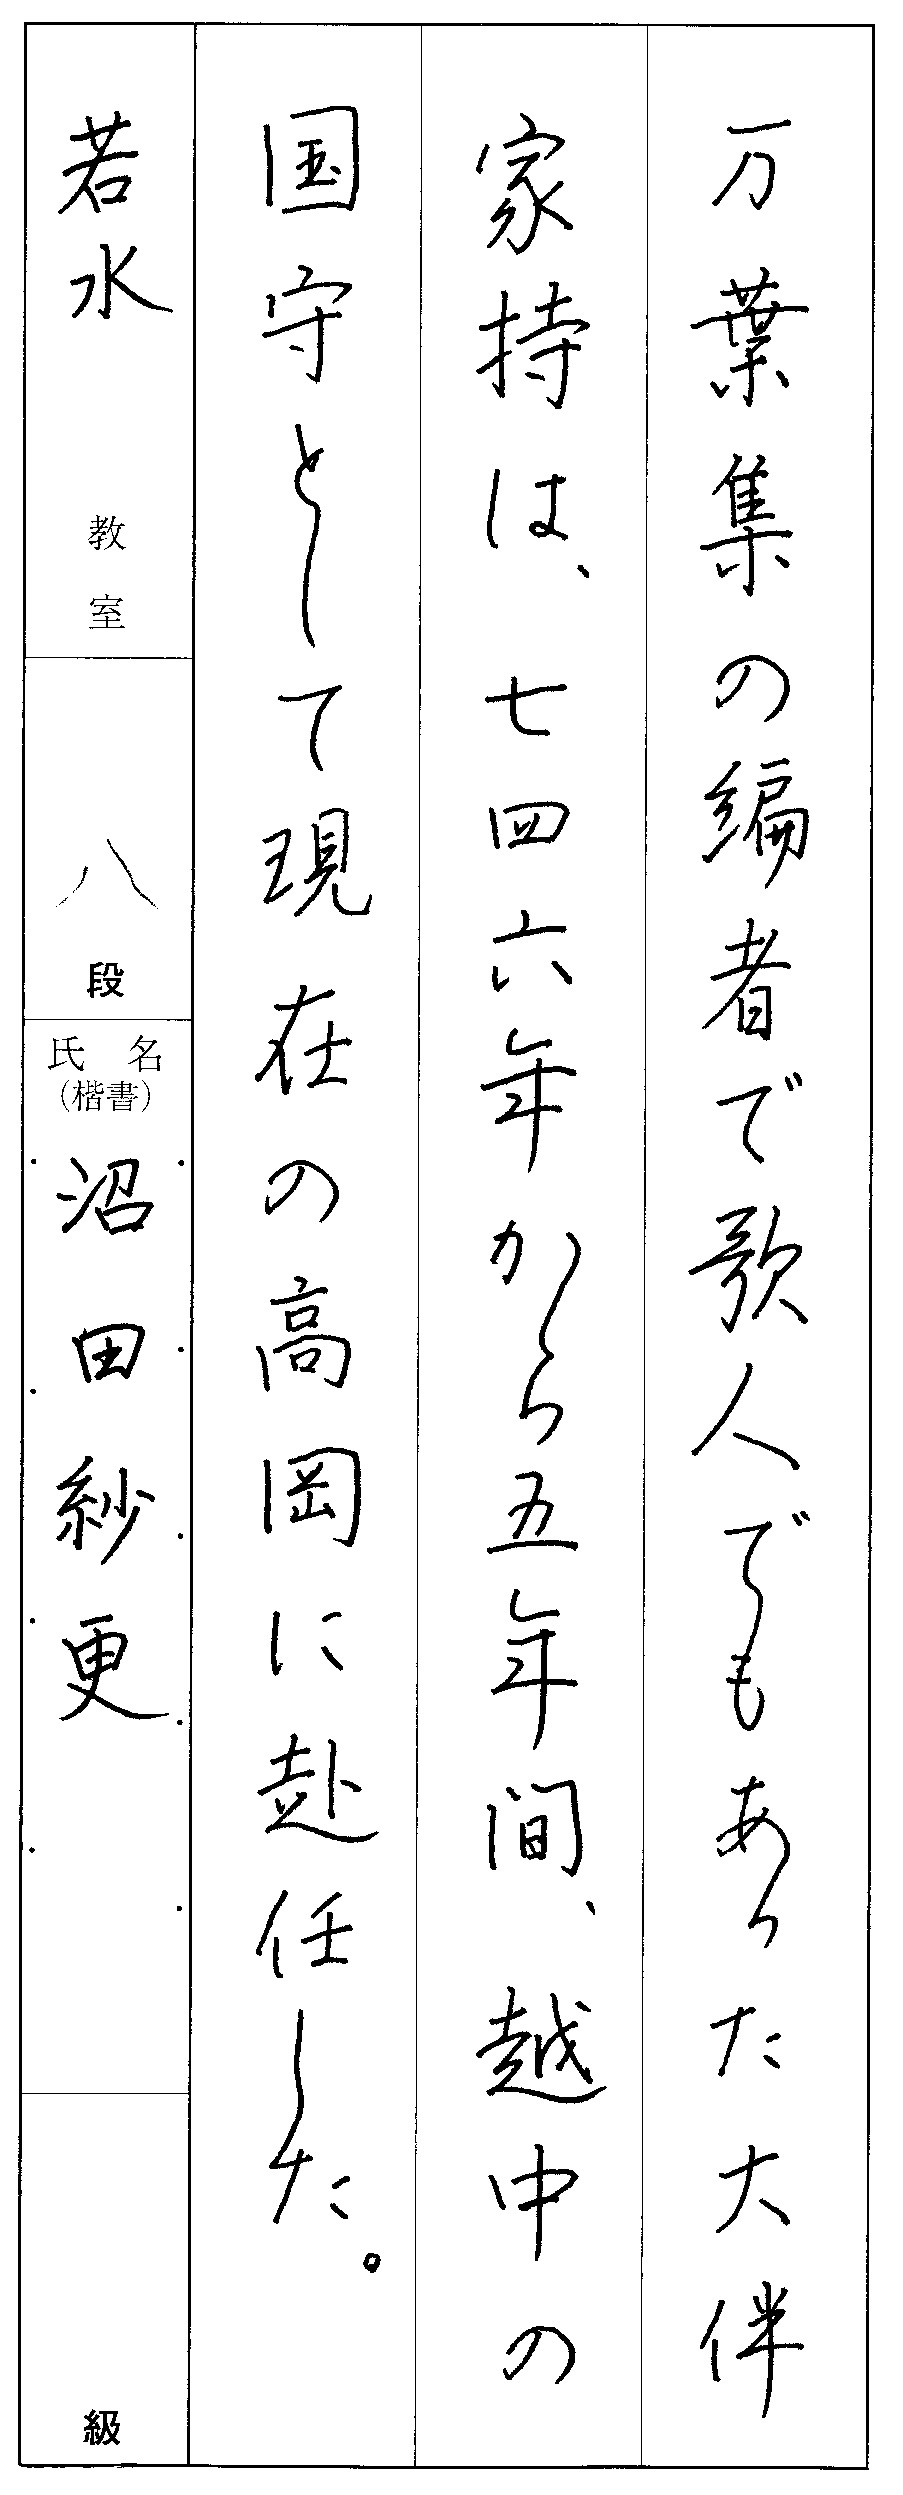 万葉集の編者で歌人でもあった大伴
家持は、七四六年から五年間、越中の
国守として現在の高岡に赴任した。
若水 教室
八 段
氏名
(楷書)
沼田紗更
級